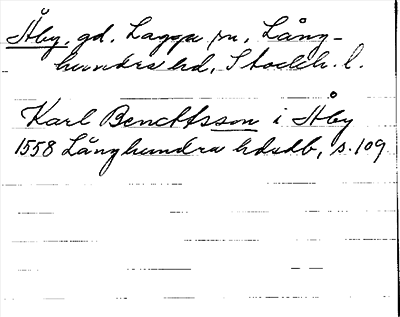 Åby, gd. Lagga sn, Lång-
hundra hd, Stockh. l.
Karl Bendttsson i Åby
1558 Långhundra hdsdb, s. 109